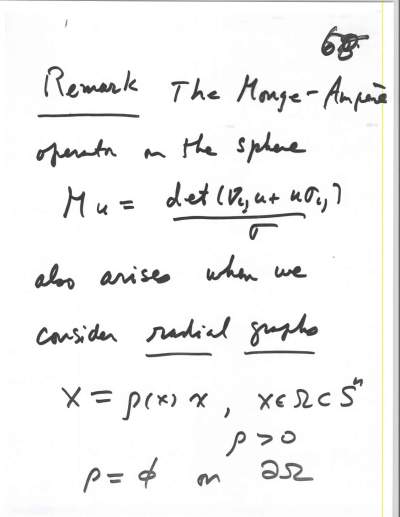 Remark The Monge-Ampère
operator on the sphere
M u = det(∇ij u + u σij) / σ
also arises when we
consider radial graphs
X = ρ(x) x , x ∈ Ω ⊂ Sⁿ
ρ > 0
ρ = φ on ∂Ω